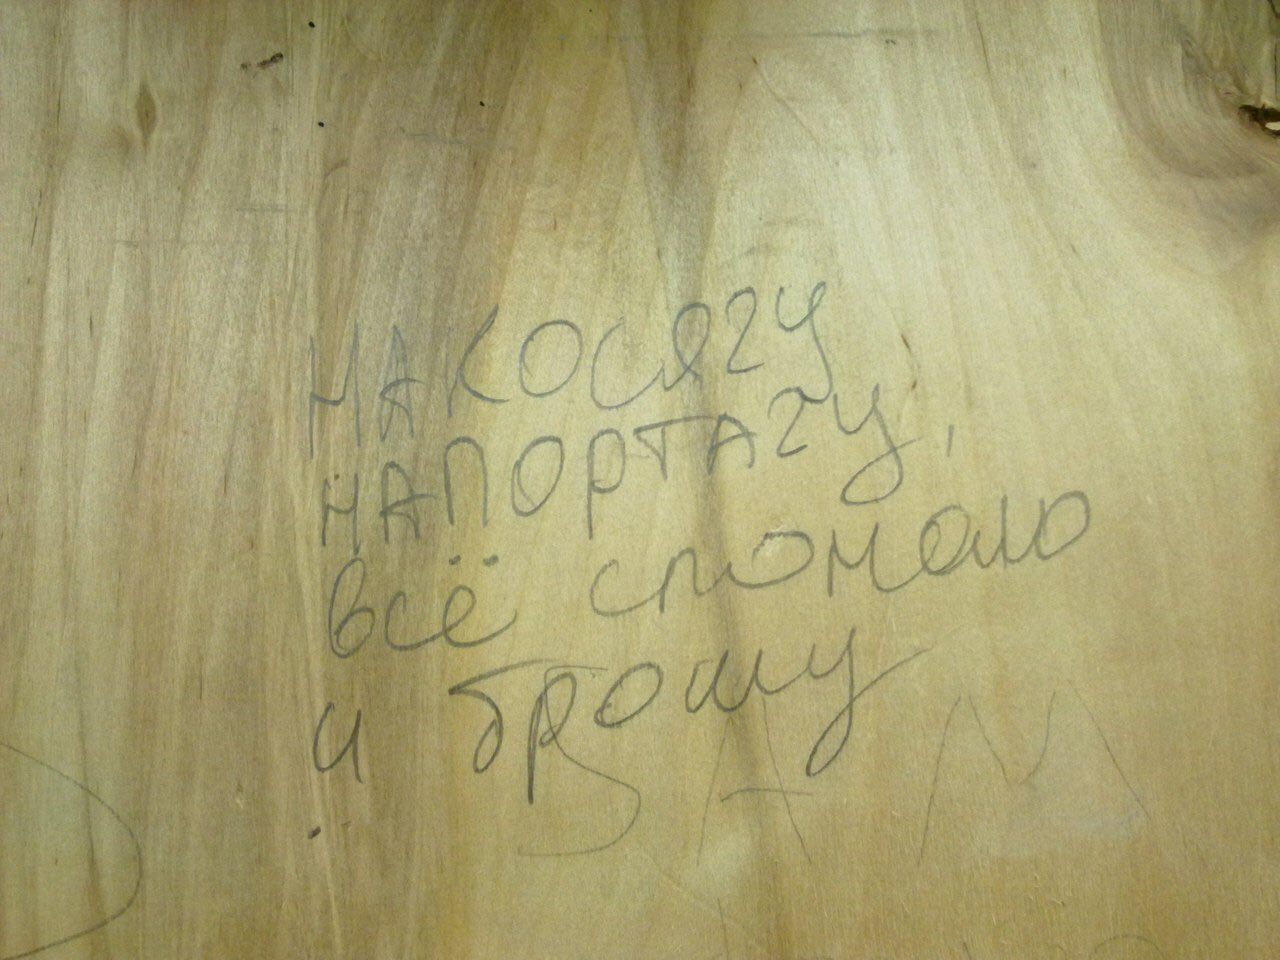 накосячу
напортачу,
всё сломаю
и брошу
ВАМ